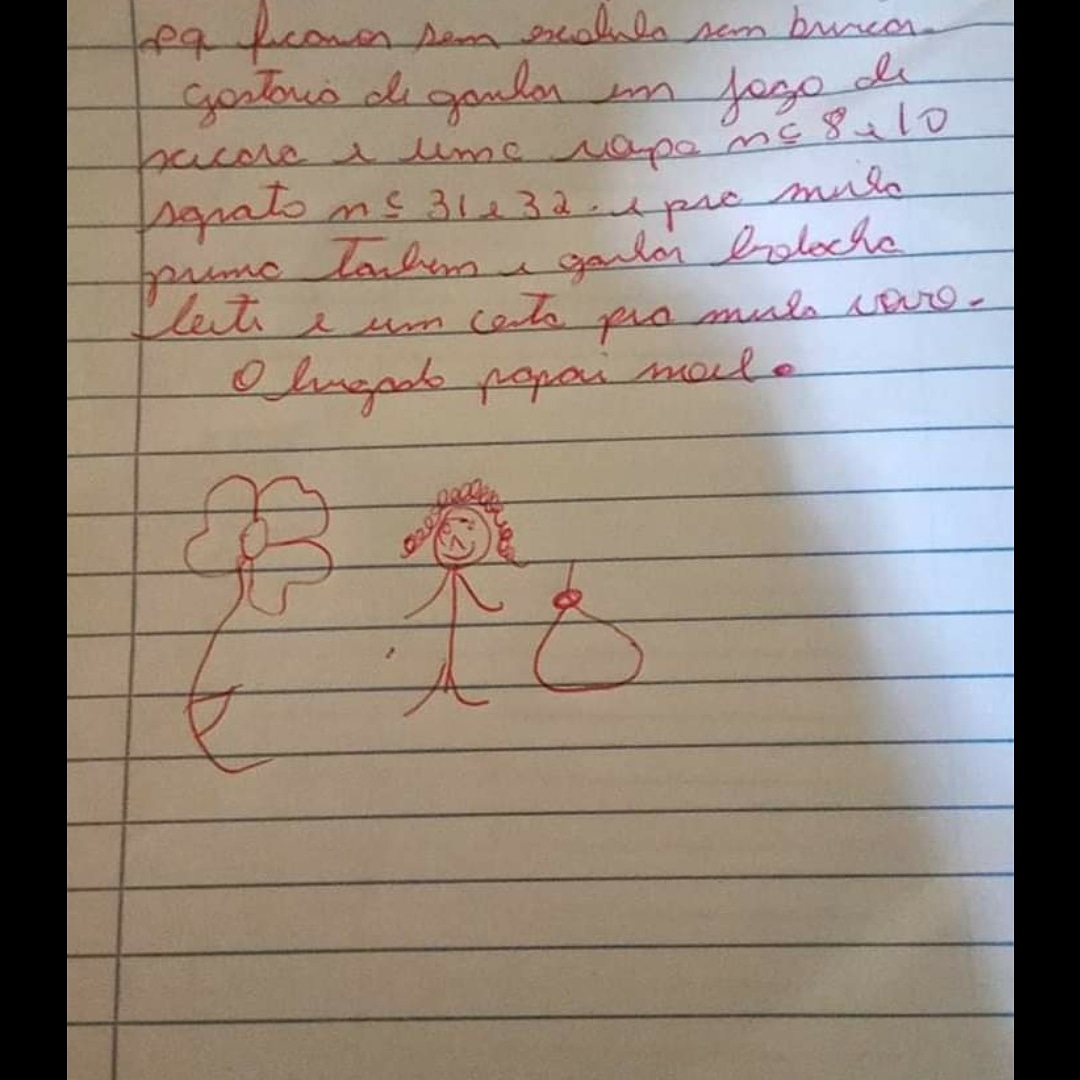 pq ficamos sem escolula sem brincar.
gostario de ganhar um jogo de
xicara e uma roupa nº 8 e 10
sapato nº 31 e 32. e pra minha
primo Tanbem e ganhar bolacha
leite e um cesta pra minha vovo.
O brigado papai noel.